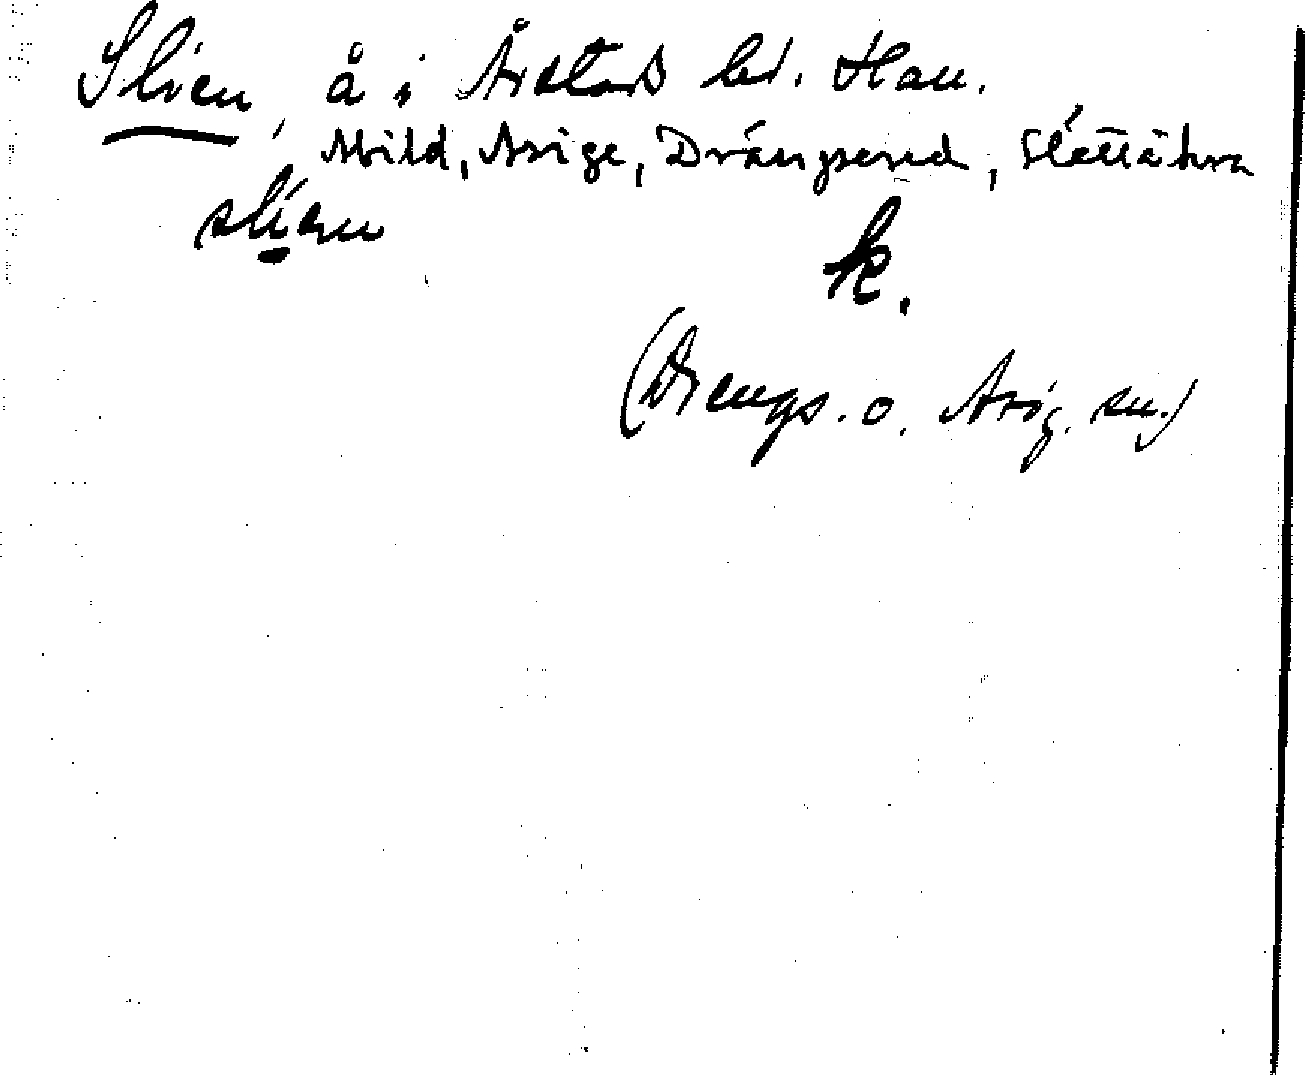 Slien, å i Årstads hd. Hall.
Abild, Asige, Drängsered, Slättåkra
slíen
k.
(Drengs. o. Asig. sn.)